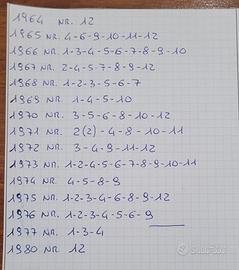 1964 NR. 12
1965 NR. 4-6-9-10-11-12
1966 NR. 1-3-4-5-6-7-8-9-10
1967 NR. 2-4-5-7-8-9-12
1968 NR. 1-2-3-5-6-7
1969 NR. 1-4-5-10
1970 NR. 3-5-6-8-10-12
1971 NR. 2(2)-4-8-10-11
1972 NR. 3-4-9-11-12
1973 NR. 1-2-4-5-6-7-8-9-10-11
1974 NR. 4-5-8-9
1975 NR. 1-2-3-4-6-8-9-12
1976 NR. 1-2-3-4-5-6-9
1977 NR. 1-3-4
1980 NR. 12
subito